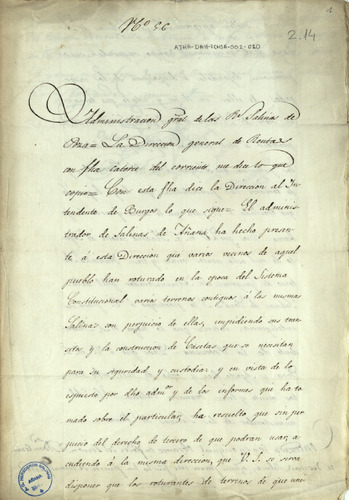 Nº 56.
1
2.14
Administracion gral de las Rs Salinas de
Poza= La Direccion general de Rentas
con fha catorce del corriente me dice lo que
copio= Con esta fha dice la Direccion al In-
tendente de Burgos lo que sigue= El adminis-
trador de Salinas de Añana ha hecho presen-
te á esta Direccion que varios vecinos de aquel
pueblo han roturado en la epoca del Sistema
Constitucional varios terrenos contiguos á las mismas
Salinas con perjuicio de ellas, impidiendo sus tran-
sitos, y la construccion de Casetas que se necesitan
para su seguridad y custodia: y en vista de lo
espuesto por dho admor y de los informes que ha to-
mado sobre el particular, ha resuelto que sin per-
juicio del derecho de tercero de que podran usar, a-
cudiendo á la misma direccion, que V. S. se sirva
disponer que los roturantes de terrenos de que